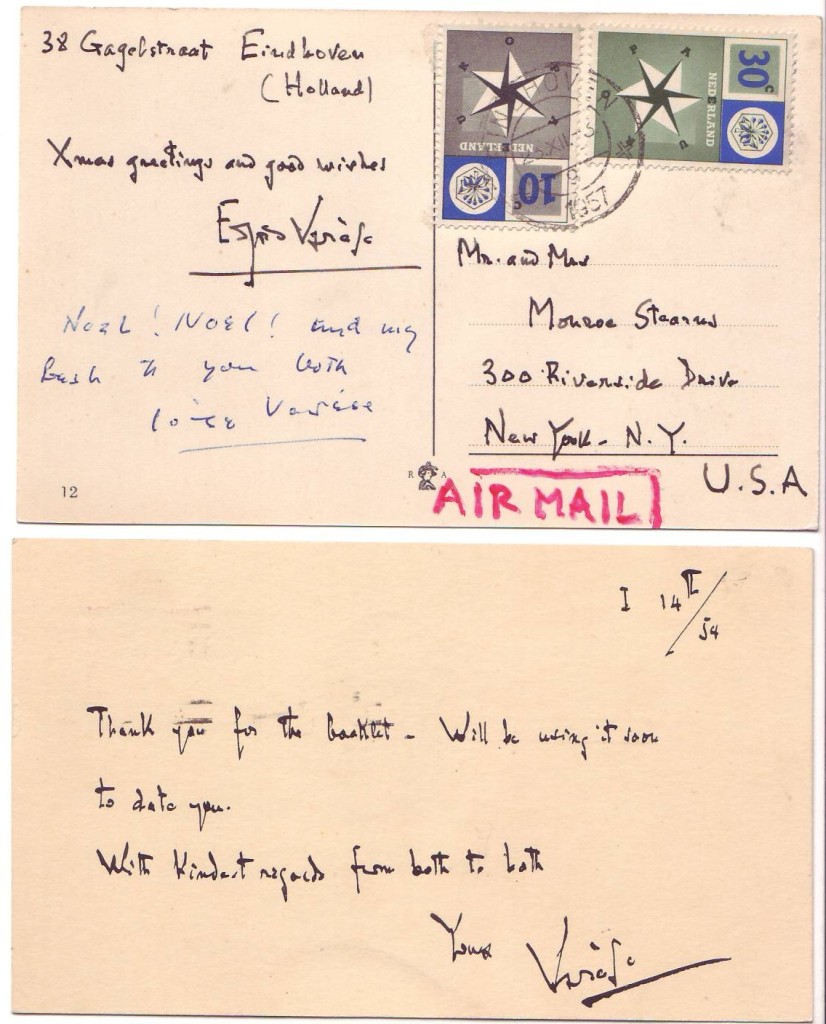 38 Gagelstraat Eindhoven
(Holland)
Xmas greetings and good wishes
Varèse
Noel! Noel! and my
best to you both
Varèse
12
EUROPA
NEDERLAND
10 c
EUROPA
NEDERLAND
30 c
EINDHOVEN
XII
1957
Mr. and Mrs
Monroe Stearns
300 Riverside Drive
New York - N.Y.
U.S.A
R A
AIR MAIL
I 14 th/54
Thank you for the booklet - Will be using it soon
to date you.
With Kindest regards from both to both
Yours Varèse